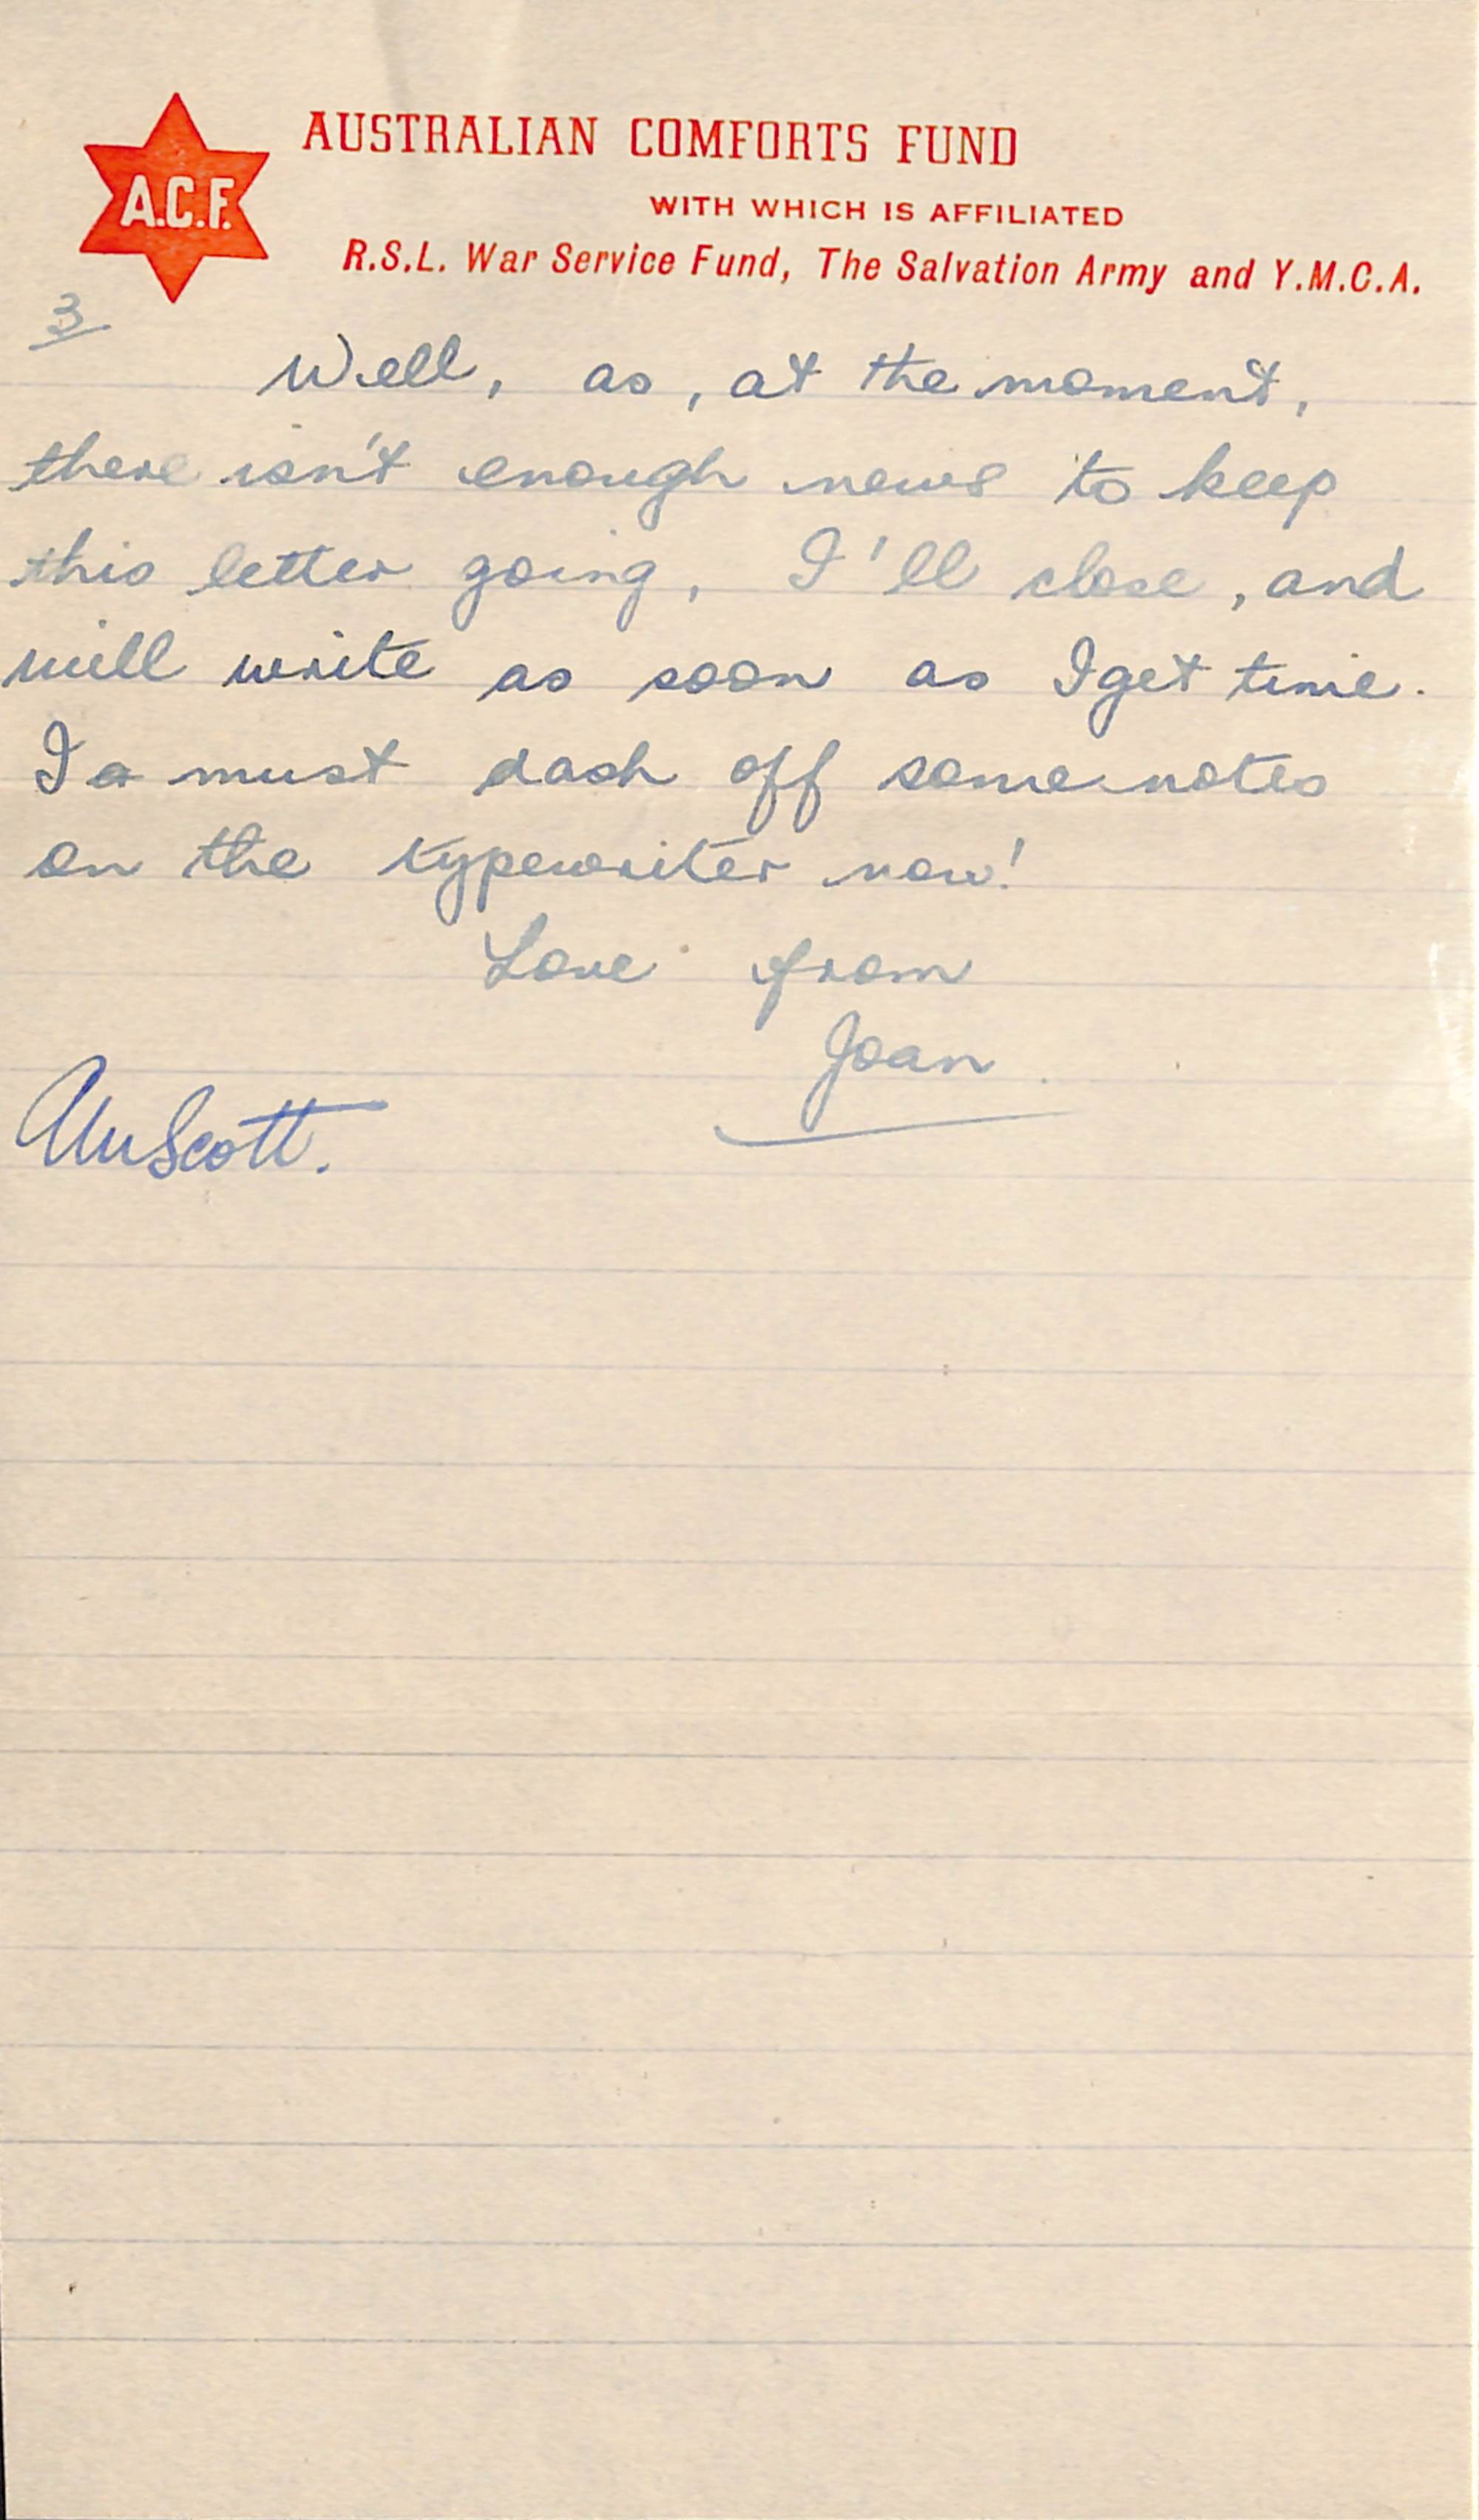 A.C.F.
AUSTRALIAN COMFORTS FUND
WITH WHICH IS AFFILIATED
R.S.L. War Service Fund, The Salvation Army and Y.M.C.A.
3
Well, as, at the moment,
there isn't enough news to keep
this letter going, I'll close, and
will write as soon as I get time.
I a must dash off some notes
on the typewriter now!
Love from
Joan
Scott.